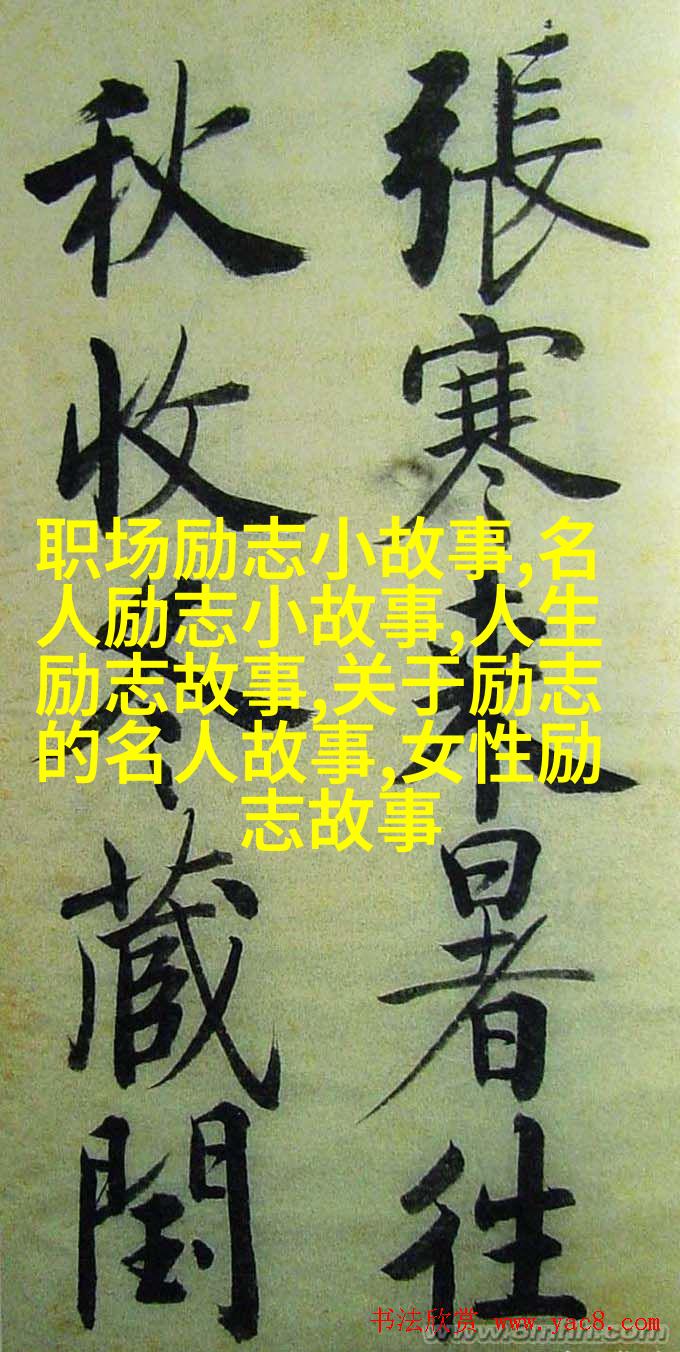 張寒來暑往
秋收冬藏閏
职场励志小故事,名
人励志小故事,人生
励志故事,关于励志
的名人故事,女性励
志故事
书法欣赏 www.yac8.com